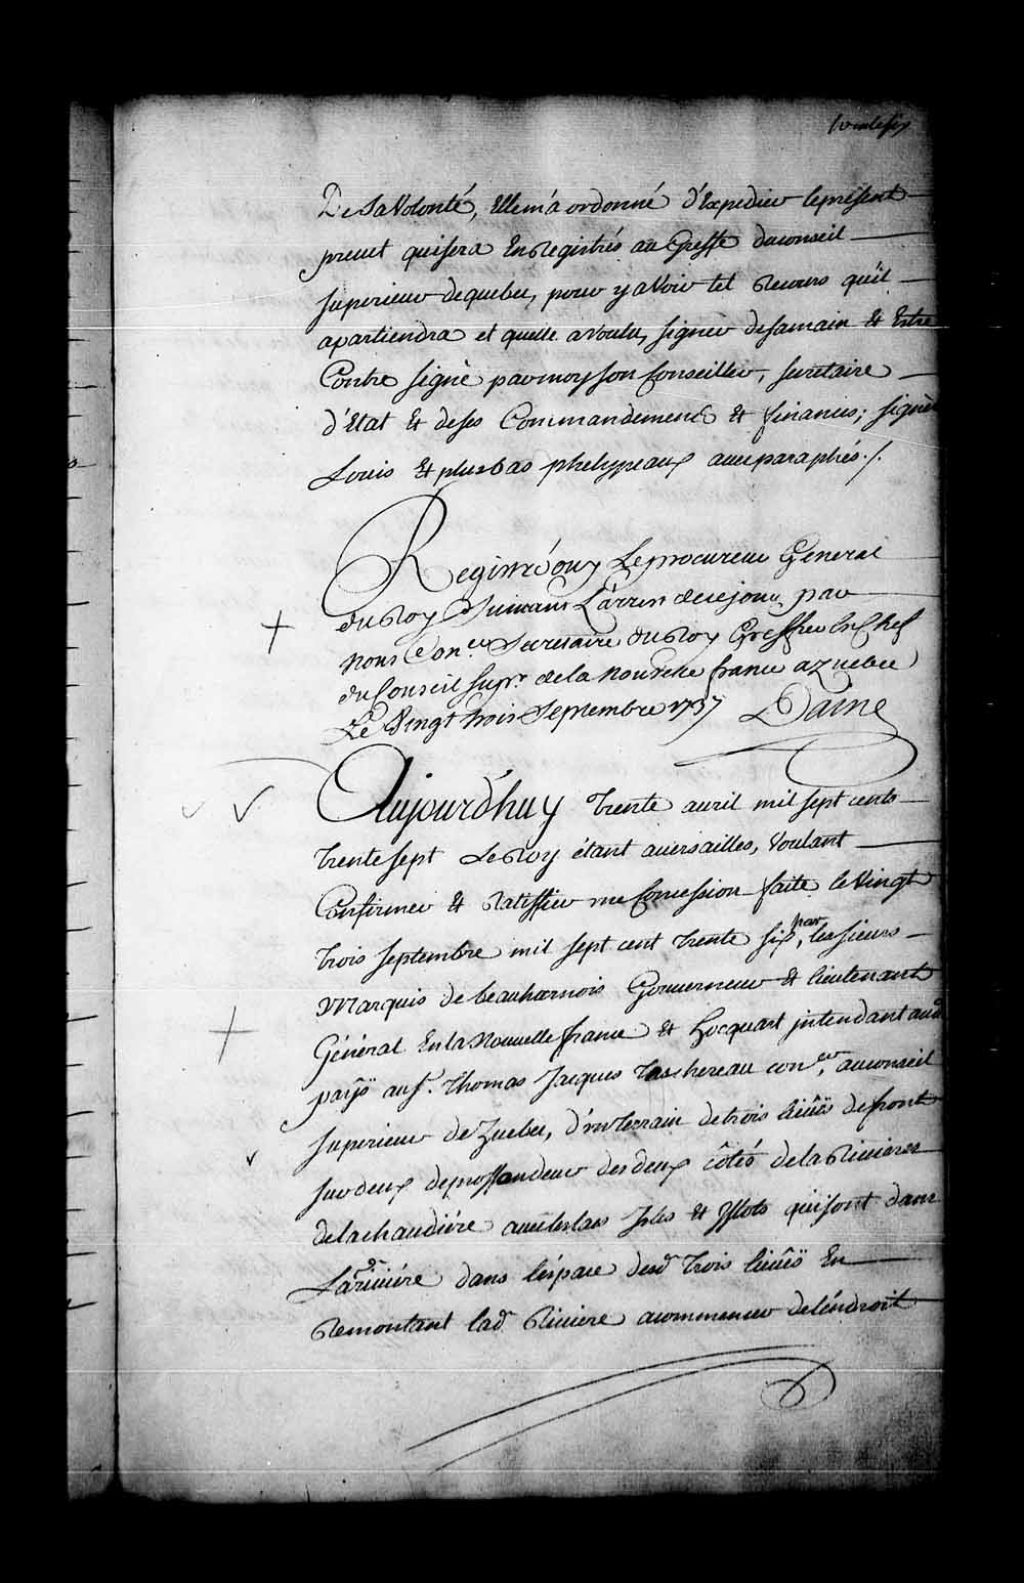 De Sa Volonté, Elle m'a ordonné d'Expedier le présent
brevet qui sera Enregistrés au Greffe du conseil
superieur de quebec, pour y avoir tel Recours qu'il
apartiendra et quelle a voulu, signer de sa main Et Estre
Contre signé par moy son Conseiller, secretaire
d'Etat Et de ses Commandements Et finances; signé
Louis Et plus bas phelypeaux avec paraphés ./.
Registré ouy Le procureur General
du Roy Suivant L'arrest de ce jour par
nous Con.er Secretaire du Roy Greffier En Chef
du Conseil Supr. de la Nouvelle france a Quebec
Le Vingt trois Septembre 1737 Daine
Aujourd'huy trente avril mil sept cents
trente sept Le Roy étant a versailles, voulant
Confirmer Et Ratiffier une Concession faite le Vingt
trois septembre mil sept cent trente six, par les sieurs
Marquis de beauharnois Gouverneur Et lieutenant
Général En la Nouvelle france Et hocquart jntendant aud.
païs au s.r Thomas Jacques Taschereau con.er au conseil
superieur de Quebec, d'un terrain de trois lieües de front
sur deux de proffondeur des deux côtés de la Riviere
de la chaudiére avec les lacs Jsles Et Jslots qui sont dans
Lad. riviére dans l'éspace desd. trois lieües En
Remontant lad. Riviere a commencer de l'éndroit